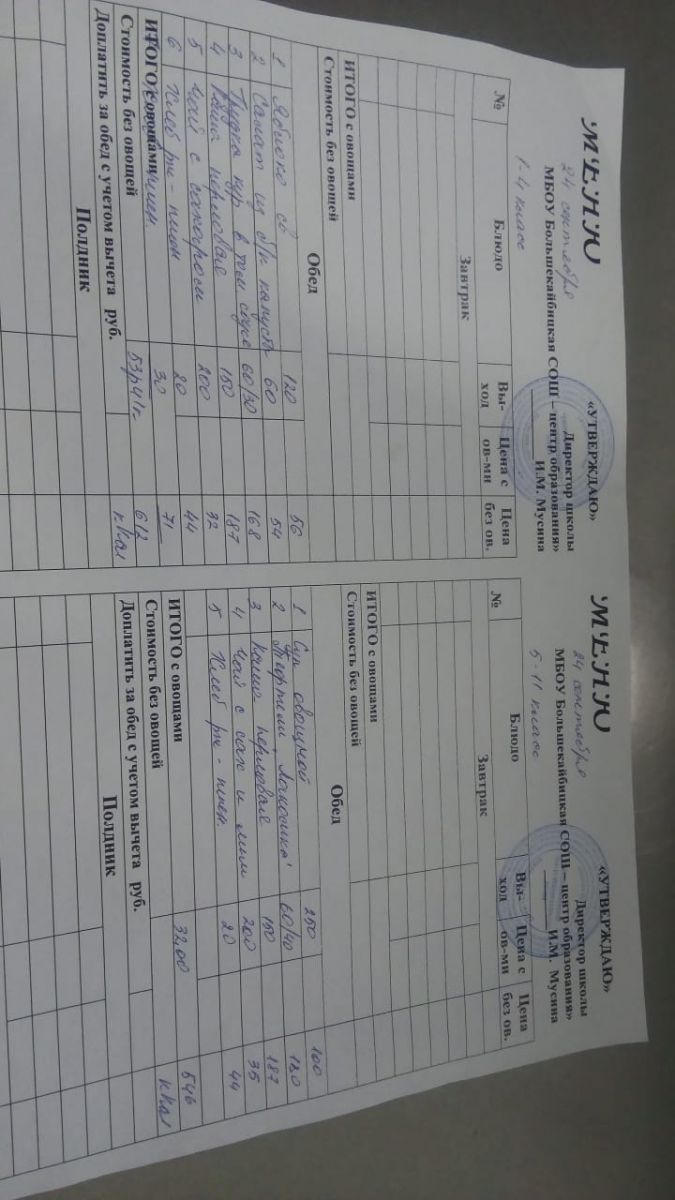 «УТВЕРЖДАЮ»
Директор школы
МБОУ Большекайбицкая СОШ – центр образования»
И.М. Мусина
МЕНЮ
24 сентября
1-4 класс
№ Блюдо Вы-ход Цена с ов-ми Цена без ов.
Завтрак
ИТОГО с овощами
Стоимость без овощей
Обед
1 Яблоко св 120 56
2 Салат из б/к капусты 60 54
3 Грудка кур в том соусе 60/30 168
4 Каша перловая 150 187
5 Чай с сахаром 200 32
6 Хлеб рж - пшен 20 44
30 71
ИТОГО с овощами 53р41к 612
Стоимость без овощей ккал
Доплатить за обед с учетом вычета руб.
Полдник
«УТВЕРЖДАЮ»
Директор школы
МБОУ Большекайбицкая СОШ – центр образования»
И.М. Мусина
МЕНЮ
24 сентября
5-11 класс
№ Блюдо Вы-ход Цена с ов-ми Цена без ов.
Завтрак
ИТОГО с овощами
Стоимость без овощей
Обед
1 Суп овощной 250 100
2 60/40 180
3 Каша перловая 150 187
4 Чай с сах и лим 200 35
5 Хлеб рж - пшен. 20 44
ИТОГО с овощами 32,00 546
Стоимость без овощей ккал
Доплатить за обед с учетом вычета руб.
Полдник